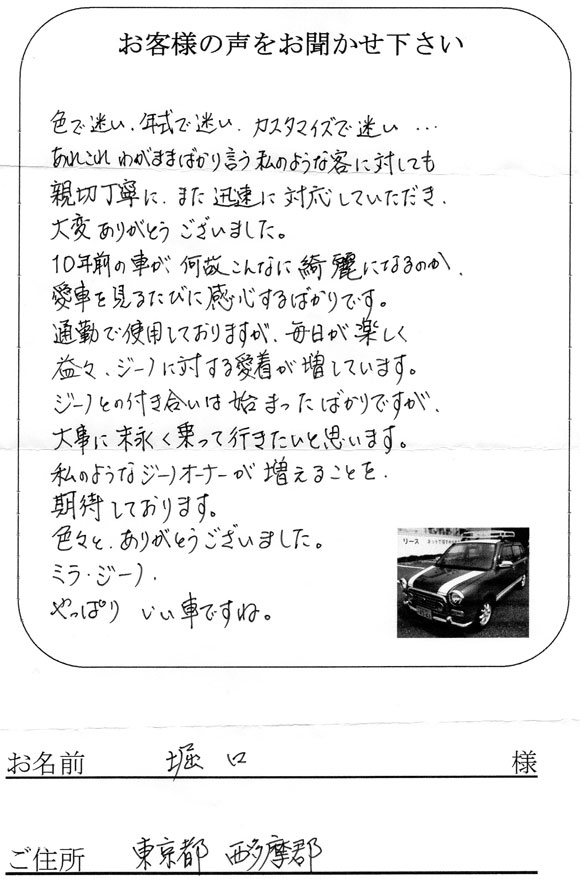 お客様の声をお聞かせ下さい
色で迷い、年式で迷い、カスタマイズで迷い …
あれこれ わがままばかり言う 私のような客に対しても
親切丁寧に、また 迅速に 対応していただき、
大変ありがとうございました。
10年前の車が、何故こんなに 綺麗になるのか、
愛車を見るたびに感心するばかりです。
通勤で使用しておりますが、毎日が楽しく
益々、ジーノに対する愛着が増しています。
ジーノとの付き合いは 始まったばかりですが、
大事に末永く乗って行きたいと思います。
私のようなジーノオーナーが 増えることを、
期待しております。
色々と、ありがとうございました。
ミラ・ジーノ、
やっぱり いい車ですね。
リース
お名前 堀口 様
ご住所 東京都 西多摩郡